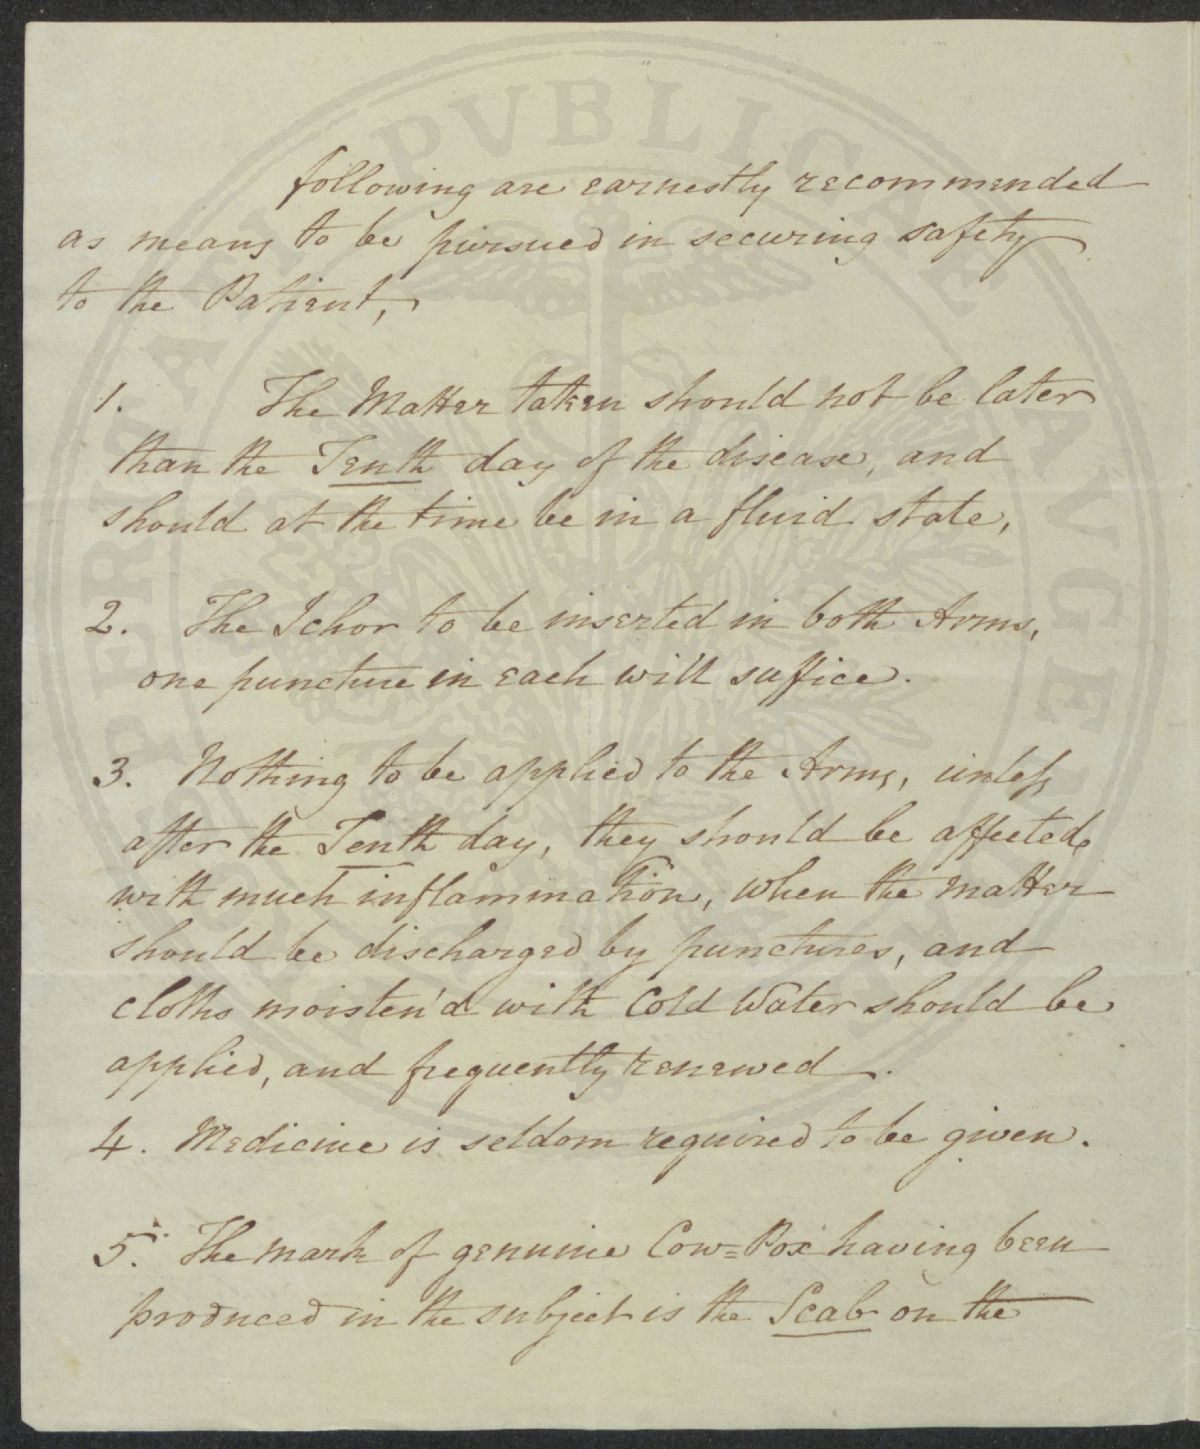 following are earnestly recommended
as means to be pursued in securing safety
to the Patient,
1. The Matter taken should not be later
than the Tenth day of the disease, and
should at the time be in a fluid state,
2. The Ichor to be inserted in both Arms,
one puncture in each will suffice.
3. Nothing to be applied to the Arms, unless
after the Tenth day, they should be affected
with much inflammation, when the matter
should be discharged by punctures, and
cloths moisten'd with Cold Water should be
applied, and frequently renewed.
4. Medicine is seldom required to be given.
5. The mark of genuine Cow=Pox having been
produced in the subject is the Scab on the